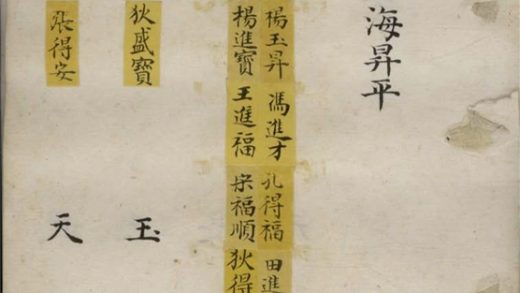 海昇平
楊玉昇 馮進才 孔得福 田進
楊進寶 王進福 福順 狄得
狄盛寶 玉
張得安 天